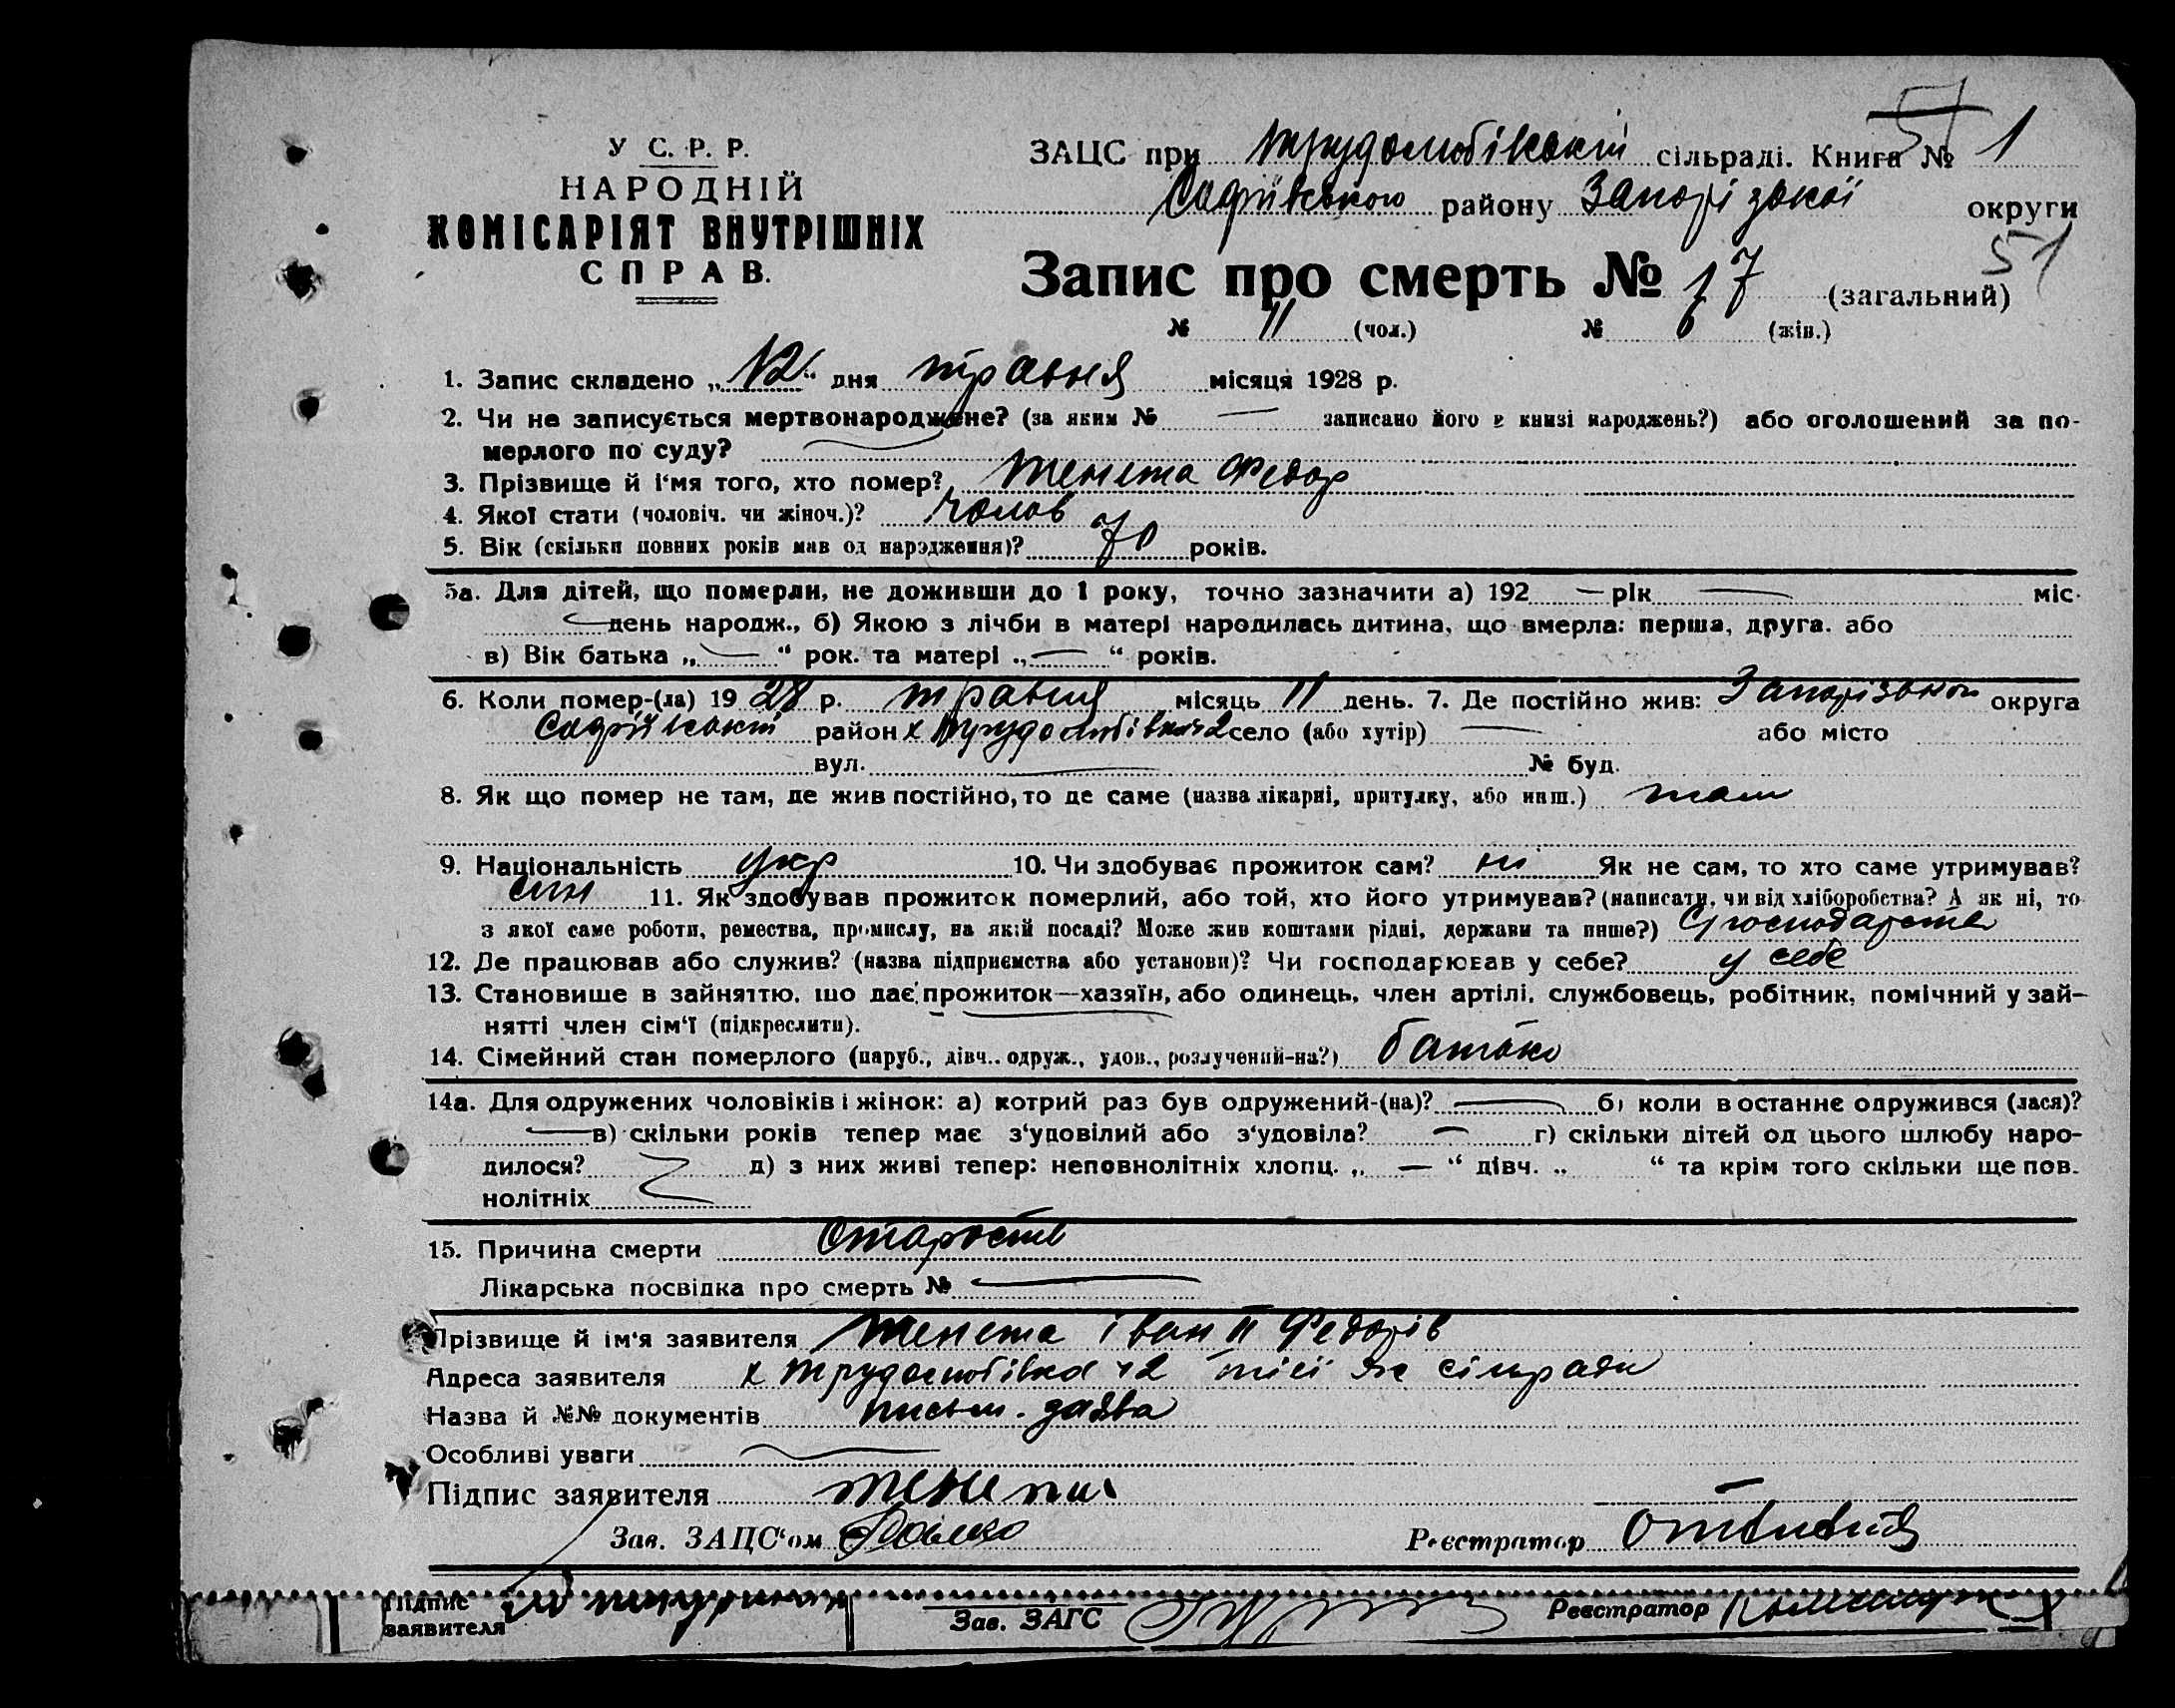 У С. Р. Р.
НАРОДНІЙ
КОМІСАРІЯТ ВНУТРІШНІХ
СПРАВ.
51
ЗАЦС при Трудолюбівській сільраді. Книга № 1
Софіївського району Запорізької округи
51
Запис про смерть № 17 (загальний)
№ 11 (чол.) № 6 (жін.)
1. Запис складено „12“ дня травня місяця 1928 р.
2. Чи не записується мертвонароджене? (за яким № — записано його в книзі народжень?) або оголошений за по-
мерлого по суду?
3. Прізвище й і'мя того, хто помер? Тенета Федор
4. Якої стати (чоловіч. чи жіноч.)? Чолов
5. Вік (скільки повних років мав од народження)? 70 років.
5а. Для дітей, що померли, не доживши до 1 року, точно зазначити а) 192 — рік — міс.
— день народж., б) Якою з лічби в матері народилась дитина, що вмерла: перша, друга. або
в) Вік батька „ — “ рок. та матері „ — “ років.
6. Коли помер-(ла) 19 28 р. травня місяць 11 день. 7. Де постійно жив: Запорізької округа
Софіївський район х Трудолюбівка ч2 село (або хутір) — або місто
вул. — № буд.
8. Як що помер не там, де жив постійно, то де саме (назва лікарні, притулку, або инш.) там
9. Національність укр 10. Чи здобуває прожиток сам? ні Як не сам, то хто саме утримував?
син 11. Як здобував прожиток померлий, або той, хто його утримував? (написати, чи від хліборобства? А як ні, то
з якої саме роботи, ремества, промислу, на якій посаді? Може жив коштами рідні, держави та инше?) господарства
12. Де працював або служив? (назва підприємства або установи)? Чи господарював у себе? у себе
13. Становише в зайняттю, що дає прожиток—хазяїн, або одинець, член артілі, службовець, робітник, помічний у зай-
нятті член сім'ї (підкреслити).
14. Сімейний стан померлого (паруб., дівч.. одруж., удов., розлучений-на?) батько
14а. Для одружених чоловіків і жінок: а) котрий раз був одружений-(на)? — б) коли востаннє одружився (лася)?
— в) скільки років тепер має з'удовілий або з'удовіла? — г) скільки дітей од цього шлюбу наро-
дилося? д) з них живі тепер: неповнолітніх хлопц. „ — “ дівч. „ “ та крім того скільки ще пов.
нолітніх
15. Причина смерти Старость
Лікарська посвідка про смерть № —
Прізвище й ім'я заявителя Тенета Іван II Федорів
Адреса заявителя х Трудолюбівка ч2 тієї же сільради
Назва й №№ документів письм. заява
Особливі уваги —
Підпис заявителя Тенета
Зав. ЗАЦС'ом Реєстратор
Підпис
заявителя Зав. ЗАГС Реєстратор